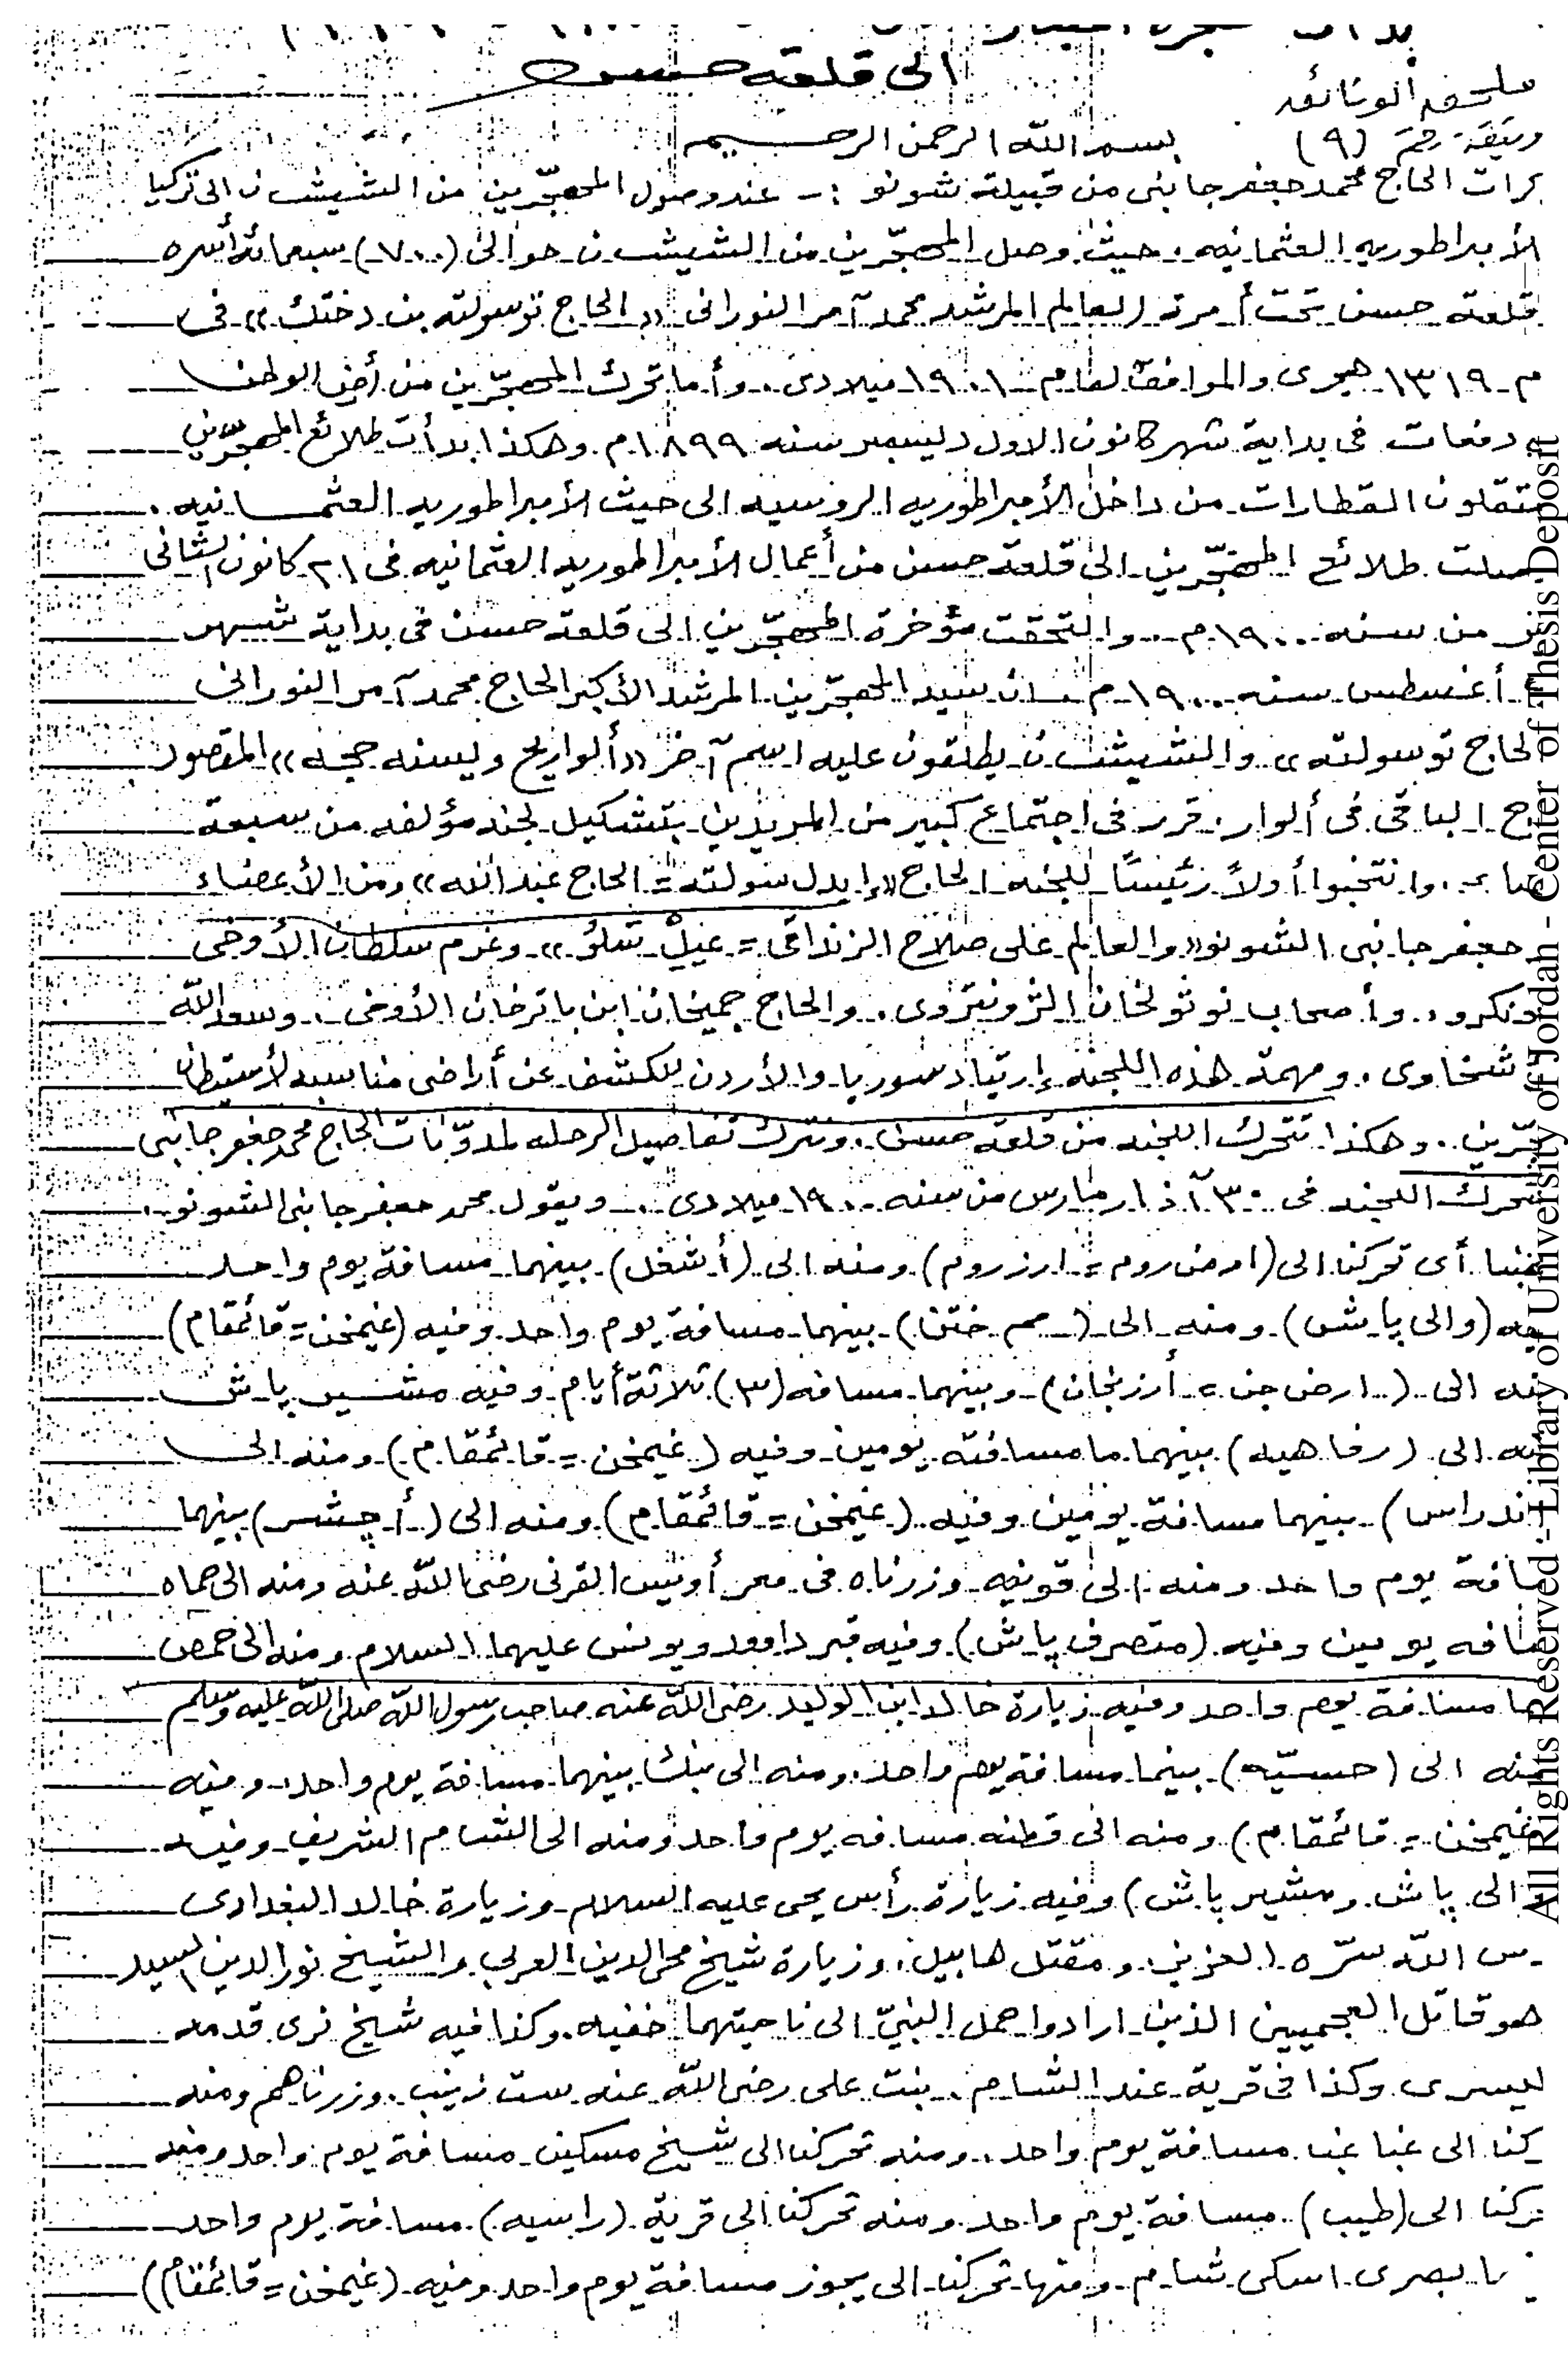 الى قلعة حسن
ملحق الوثائق
وثيقة رقم (٩)
بسم الله الرحمن الرحيم
كرات الحاج محمد جعفر جابنى من قبيلة شونو :- عند وصول المهجّرين من الشيشان الى تركيا
الأمبراطوريه العثمانيه . حيث وصل المهجّرين من الشيشان حوالى (٧٠٠) سبعمائة أسره
قلعة حسن تحت أمرة العالم المرشد محمد آمر النورانى «الحاج توسولته بن دختك» فى
م ١٣١٩ هجرى والموافق لعام ١٩٠١ ميلادى . وأما تحرك المهجّرين من أرض الوطن
دفعات فى بداية شهر كانون الاول ديسمبر سنه ١٨٩٩م وهكذا بدأت طلائع المهجّرين
ستقلون القطارات من داخل الأمبراطوريه الروسيه الى حيث الأمبراطوريه العثمانيه .
صلت طلائع المهجّرين الى قلعة حسن من أعمال الأمبراطوريه العثمانيه فى ٢١ كانون الثانى
ير من سنه ١٩٠٠م . والتحقت مؤخرة المهجّرين الى قلعة حسن فى بداية شهر
أغسطس سنه ١٩٠٠م ان سيد المهجّرين المرشد الأكبر الحاج محمد آمر النورانى
لحاج توسولته» والشيشان يطلقون عليه اسم آخر «ألواريح ويسنه حجه» المقصود
اج الباقى فى ألوار . قرر فى اجتماع كبير من المريدين بتشكيل لجنه مؤلفه من سبعة
ضاء . وانتخبوا أولاً رئيسًا للجنه الحاج «إيدل سولته = الحاج عبد الله» ومن الأعضاء
جعفر جابنى الشونو «والعالم على صلاح الزنداقى = عيلْ تسلؤ» وغرم سلطان الأوخى
ونكرو . وأصحاب نوثولخان الثرونتروى . والحاج جميخان ابن باترخان الأوخى . وسعدالله
شخاوى . ومهمة هذه اللجنه إرتياد سوريا والأردن للكشف عن أراضى مناسبه لأستيطان
جّرين . وهكذا تتحرك اللجنه من قلعة حسن . ونترك تفاصيل الرحله لمدوّنات الحاج محمد جعفر جابنى
تحرك اللجنه فى ٣٠ آذار مارس من سنه ١٩٠٠ ميلادى . ويقول محمد جعفر جابنى الشونو .
أى تحركنا الى (ارض روم = ارزروم) ومنه الى (أشغل) بينهما مسافة يوم واحد
يه (والى پاش) ومنه الى (مم ختن) بينهما مسافة يوم واحد وفيه (غيمخن = قائمقام)
نه الى (ارض جن = أرزنجان) وبينهما مسافه (٣) ثلاثة أيام وفيه مشير پاش
نه الى (رفاهيه) بينهما مامسافة يومين وفيه (غيمخن = قائمقام) ومنه الى
ندراس) بينهما مسافة يومين وفيه (غيمخن = قائمقام) ومنه الى (أچشر) بينهما
سافة يوم واحد ومنه الى قونيه وزرناه فى ممر أويس القرنى رضى الله عنه ومنه الى حماه
سافه يومين وفيه (متصرف پاش) وفيه قبر داوود ويونس عليهما السلام ومنه الى حمص
ما مسافة يوم واحد وفيه زيارة خالد ابن الوليد رضى الله عنه صاحب رسول الله صلى الله عليه وسلم
منه الى (حسيّه) بينما مسافة يوم واحد . ومنه الى نبك بينهما مسافة يوم واحد . وفيه
غيمخن = قائمقام) ومنه الى قطنه مسافه يوم واحد ومنه الى الشام الشريف وفيه
الى پاش ومشير پاش) وفيه زيارة رأس يحى عليه السلام وزيارة خالد البغدادى
س الله سرّه العزيز . ومقتل هابيل . وزيارة شيخ محى الدين العربى والشيخ نور الدين السيد
هو قاتل العجميين الذين ارادوا حمل النبيّ الى ناحيتهما خفيه . وكذا فيه شيخ نرى قدمه
ليسرى وكذا فى قرية عند الشام . بنت على رضى الله عنه ست زينب . وزرناهم ومنه
كنا الى غبا غبا مسافة يوم واحد . ومنه تحركنا الى شيخ مسكين مسافة يوم واحد ومنه
ركنا الى (طيب) مسافة يوم واحد ومنه تحركنا الى قرية (راسيه) مسافة يوم واحد
ا بصرى اسكى شام ومنها تحركنا الى يجوز مسافة يوم واحد وفيه (غيمخن = قائمقام)
All Rights Reserved - Library of University of Jordan - Center of Thesis Deposit